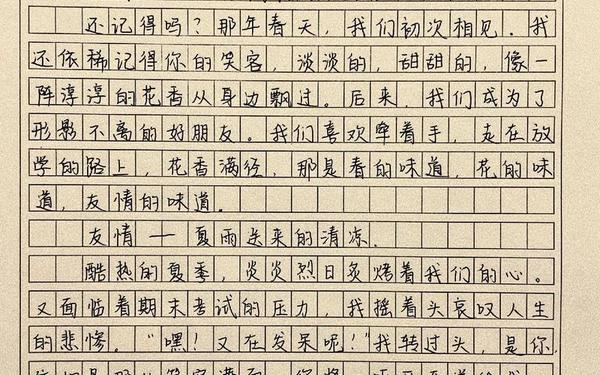 还记得吗？那年春天，我们初次相见。我
还依稀记得你的笑容，淡淡的，甜甜的，像一
阵淳淳的花香从身边飘过。后来，我们成为了
形影不离的好朋友。我们喜欢牵着手，走在放
学的路上，花香满径，那是春的味道，花的味
道，友情的味道。
友情——夏雨送来的清凉.
酷热的夏季，炎炎烈日炙烤着我们的心。
又面临着期末考试的压力，我摇着头哀叹人生
的悲惨。“嘿！又在发呆呢！”我转过头，是你，